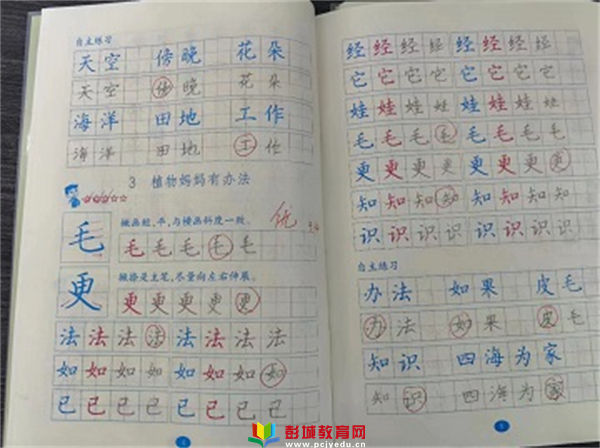 自主练习
天空 傍晚 花朵
天空 傍晚 花朵
海洋 田地 工作
海洋 田地 工作
3 植物妈妈有办法
毛 撇画短、平,与横画斜度一致。 优
毛毛毛毛毛
更 撇捺是主笔,尽量向左右伸展。
更更更更更
法法法法法法法法
如如如如如如如如
已已已已已已已已
经经经经经经经经
它它它它它它它它
娃娃娃娃娃娃娃娃
毛毛毛毛毛毛毛毛
更更更更更更更更
知知知知知知知知
识识识识识识识识
自主练习
办法 如果 皮毛
办法 如果 皮毛
知识 四海为家
知识 四海为家
彭城教育网
www.pcjyedu.cn